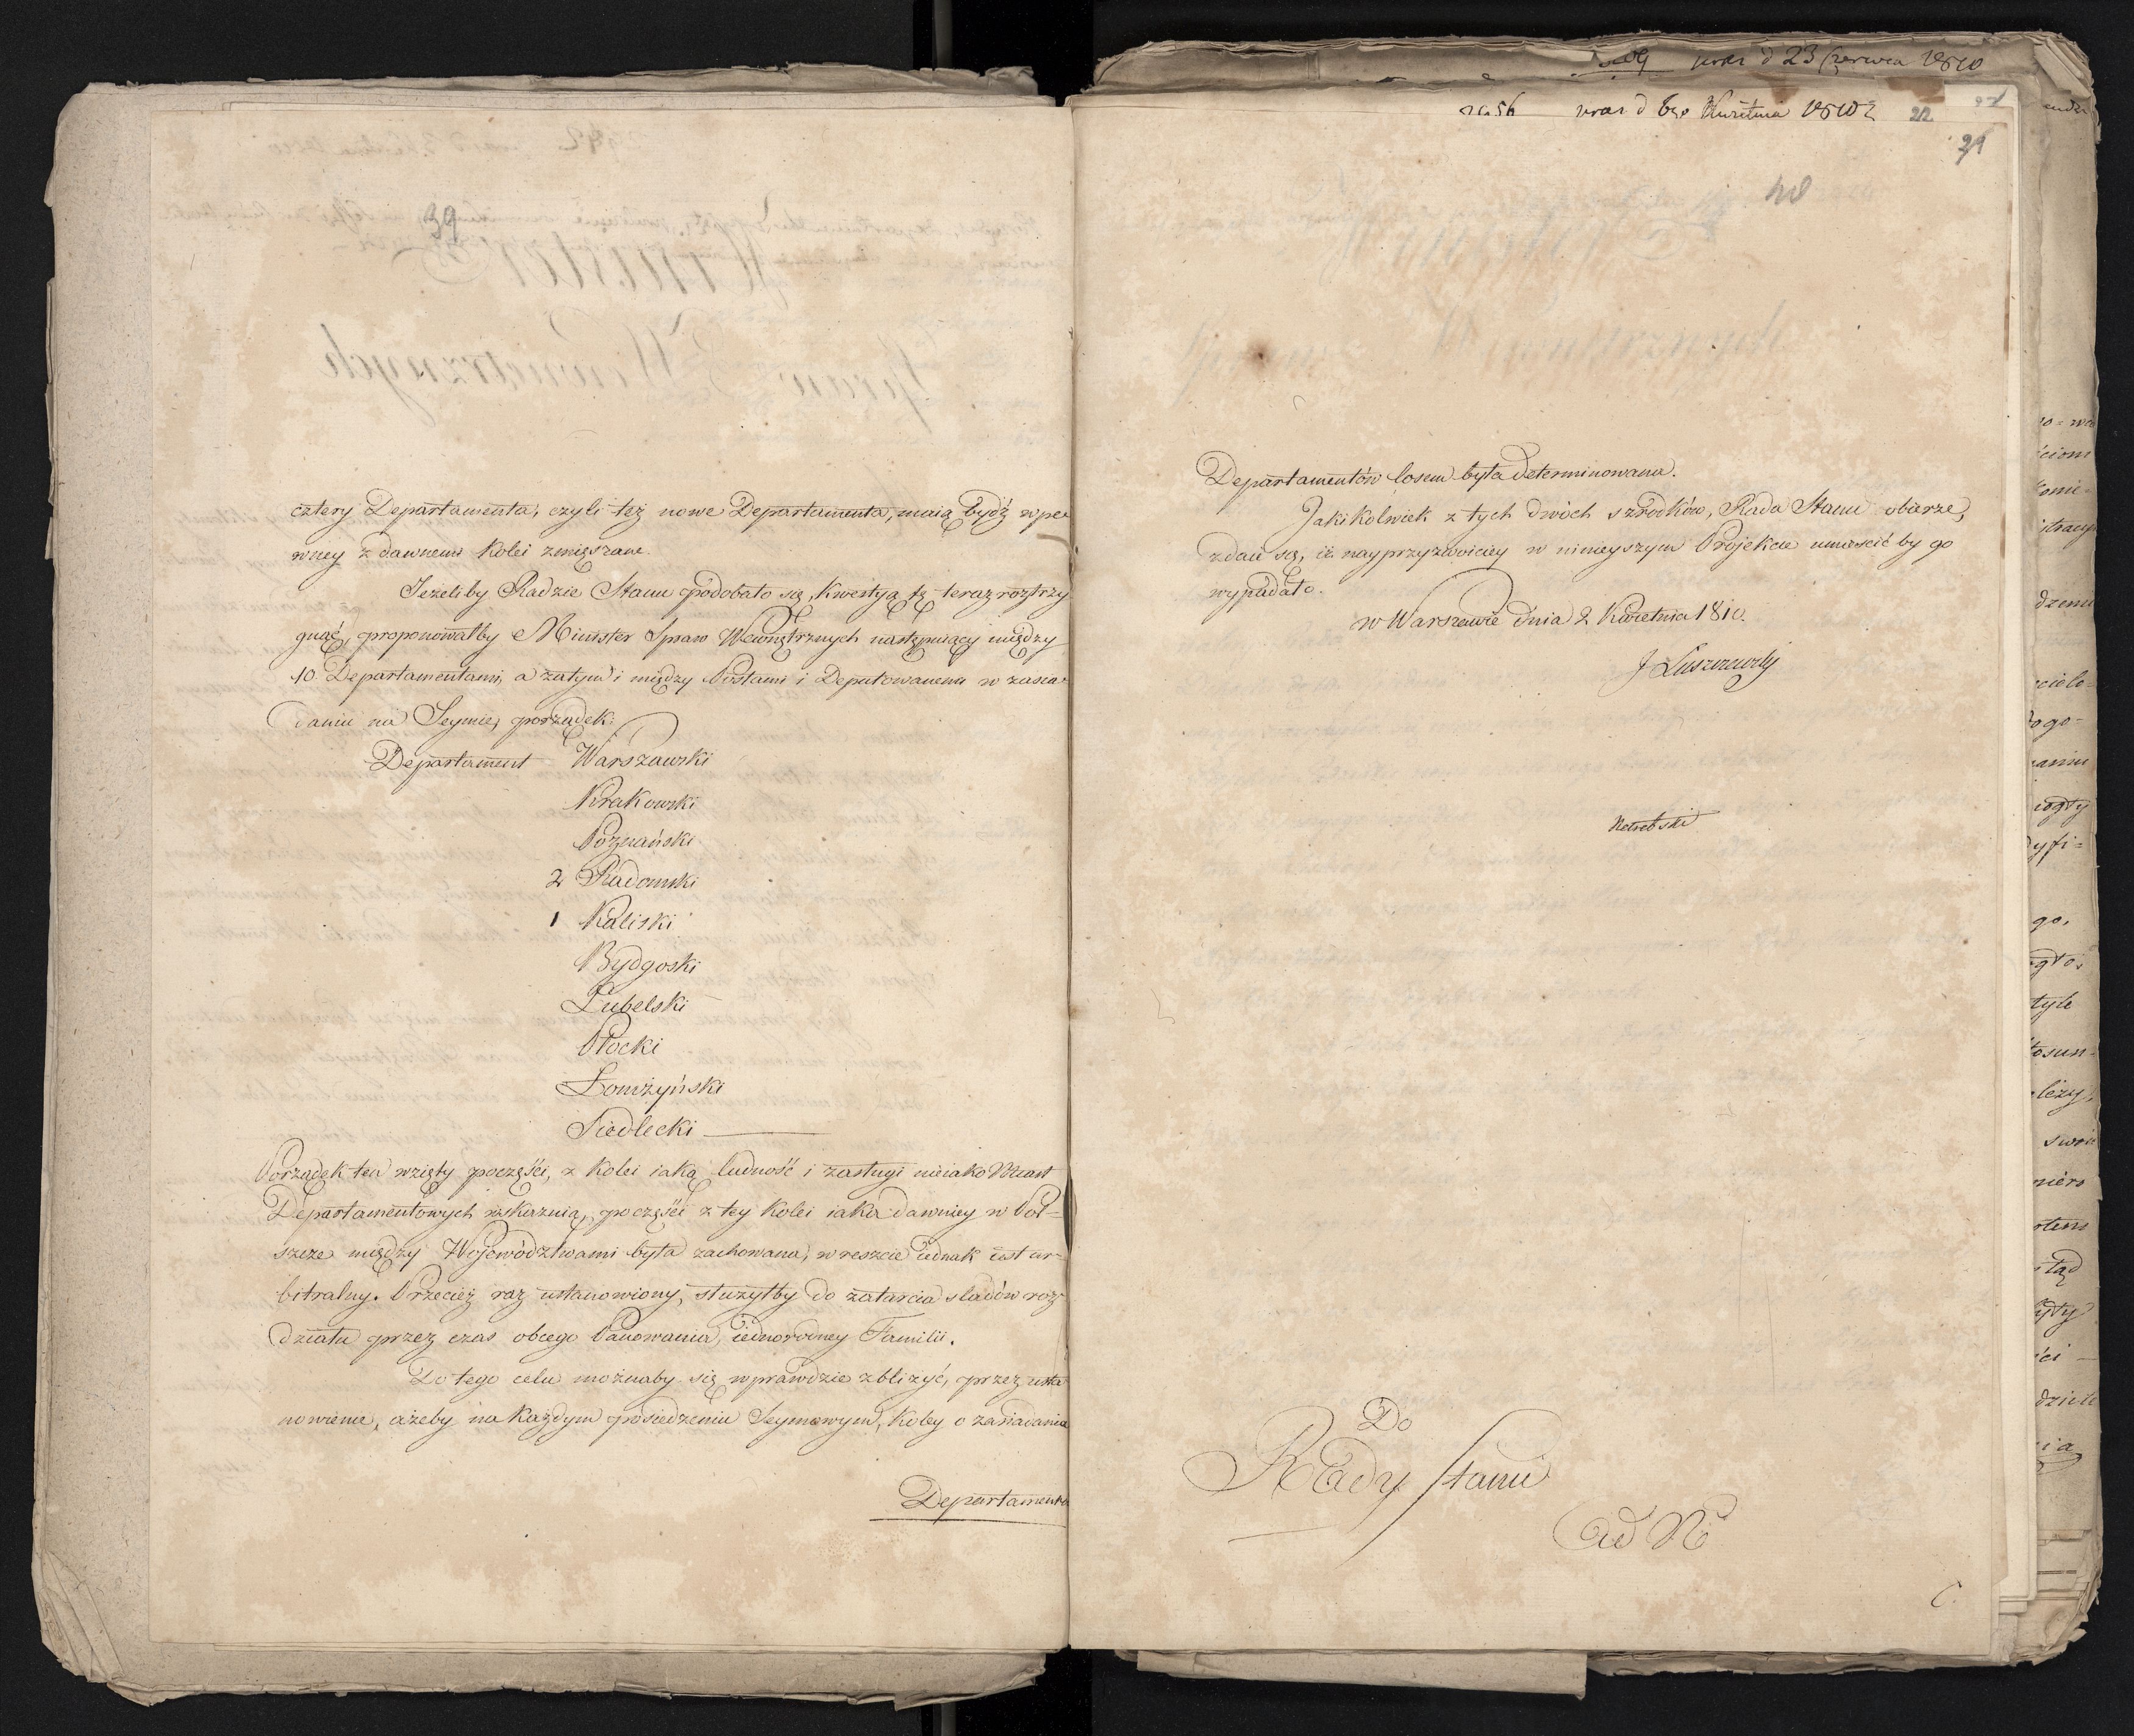 39
cztery Departamenta, czyli też nowe Departamenta, maią bydź w pe-
wney z dawnemi kolei zmięszane.
Jeżeliby Radzie Stanu podobało się, kwestyą tę teraz roztrzy
gnąć, proponowałby Minister Spraw Wewnętrznych następuiący między
10 Departamentami, a zatym i między Posłami i Deputowanemi w zasia-
daniu na Seymie, porządek:
Departament Warszawski
Krakowski
Poznański
2 Radomski
1 Kaliski
Bydgoski
Lubelski
Płocki
Łomżyński
Siedlecki
Porządek ten wzięty poczęści, z kolei iaką ludność i zasługi nieiako Miast
Departamentowych wskazuią, poczęści z tey kolei iaka dawniey w Pol-
szcze między Województwami była zachowana, w reszcie iednak iest ar-
bitralny. Przecież raz ustanowiony, służyłby do zatarcia sladów roz
działu przez czas obcego Panowania, iednorodney Familii.
Do tego celu możnaby się wprawdzie zbliżyć, przez usta
nowienie, ażeby na każdym posiedzeniu Seymowym, koley o zasiadania
Departamentó
wras d 23 Czerwca 1810
2656 wras d 6go Kwietnia 1810 22
21
40
Departamentów losem była determinowana.
Jakikolwiek z tych dwóch szrodków, Rada Stanu obierze,
zdaie się, iż nayprzyzwoiciey w ninieyszym Projekcie umieścić by go
wypadało.
w Warszawie dnia 2 Kwietnia 1810.
J Łuszczewski
Do
Rady Stanu
Ad No